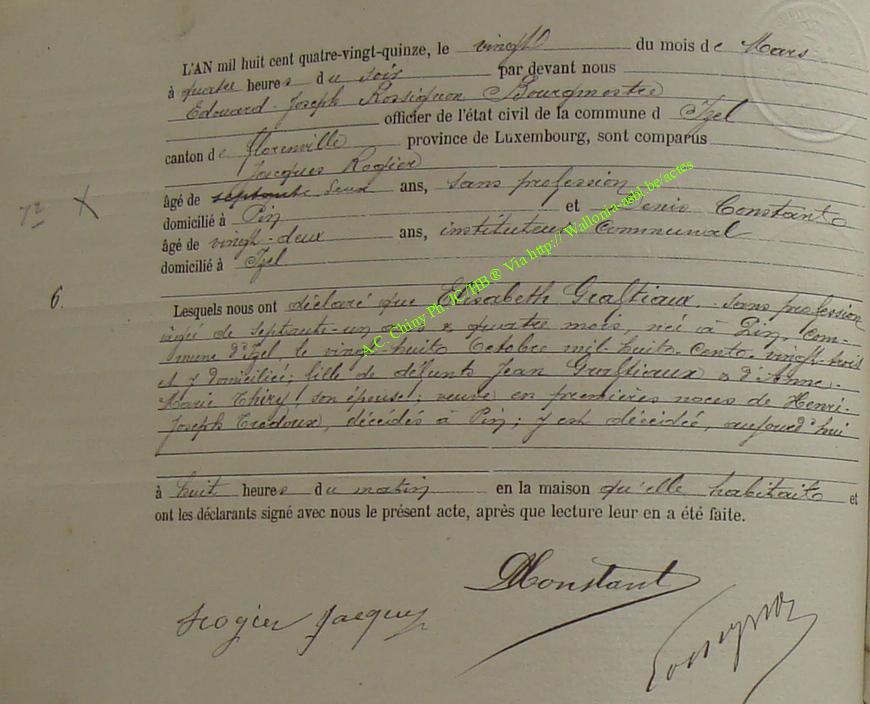 L'AN mil huit cent quatre-vingt-quinze, le vingt du mois de Mars
à quatre heures du soir par devant nous
Edouard-Joseph Rossignon Bourgmestre
officier de l'état civil de la commune d Izel
canton de Florenville province de Luxembourg, sont comparus
Jacques Rogier
âgé de septante deux ans, sans profession
domicilié à Pin et Denis Constant
âgé de vingt-deux ans, instituteur communal
domicilié à Izel
6.
Lesquels nous ont déclaré que Elisabeth Graltiaux, sans profession
âgée de septante-un ans & quatre mois, née à Pin, com-
mune d'Izel, le vingt-huit Octobre mil-huit-cent-vingt-trois
et y domiciliée; fille de défunts Jean Graltiaux & d'Anne-
Marie Thiry, son épouse; veuve en premières noces de Henri-
Joseph Tradoux, décédés à Pin; y est décédée, aujourd'hui
à huit heures du matin en la maison qu'elle habitait et
ont les déclarants signé avec nous le présent acte, après que lecture leur en a été faite.
DConstant
Rogier Jacques
Rossignon
A.C. Chiny Ph. JC/HB® Via http://Wallonia-asbl.be/actes